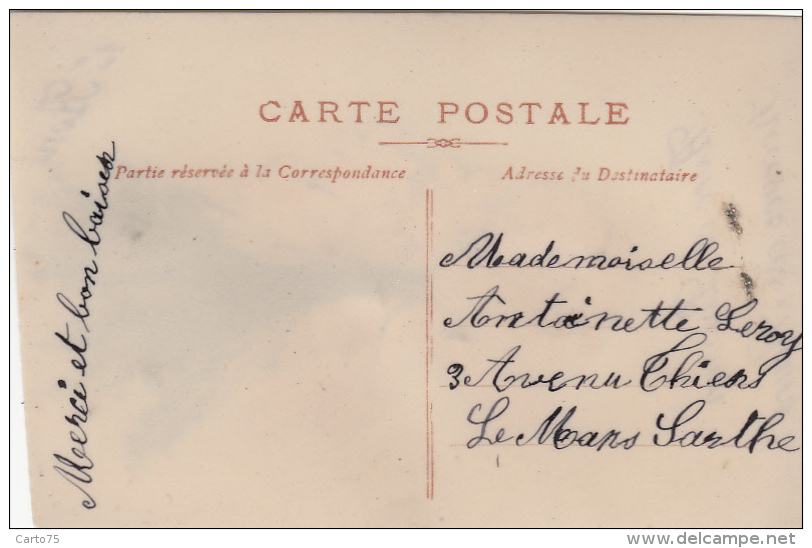 CARTE POSTALE
Partie réservée à la Correspondance
Adresse du Destinataire
Merci et bon baiser
Mademoiselle
Antoinette Leroy
3 Avenu Thiers
Le Mans Sarthe
Carto75
www.delcampe.net